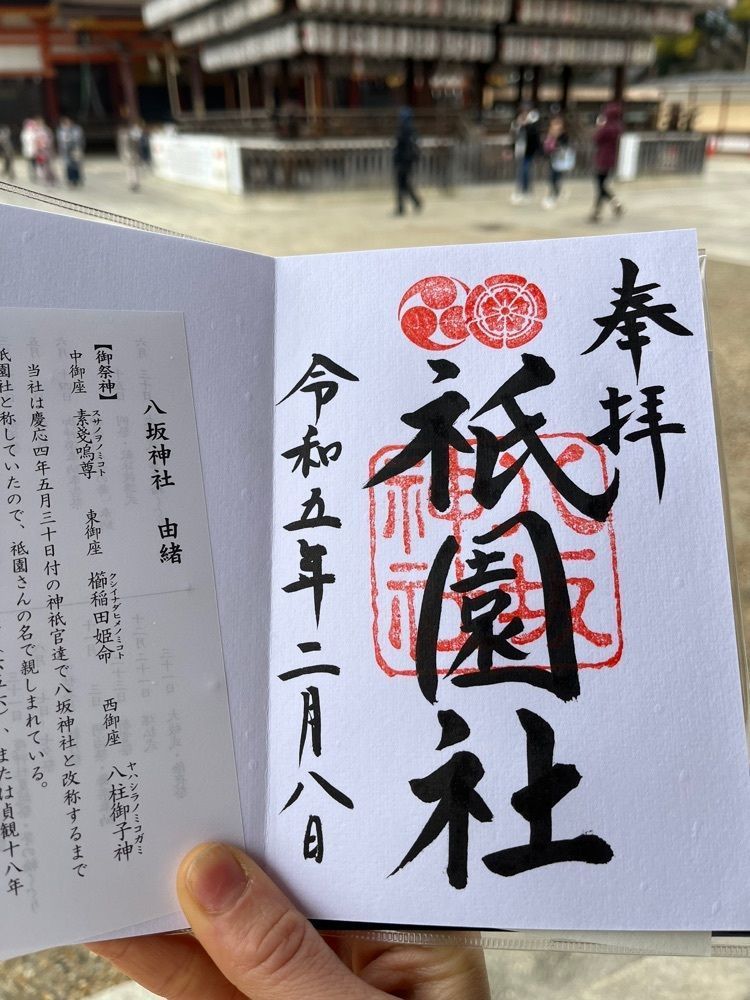 奉拝
祇園社
八坂
神社
令和五年二月八日
八坂神社　由緒
【御祭神】
スサノヲノミコト　クシイナダヒメノミコト　ヤハシラノミコガミ
中御座　素戔嗚尊　東御座　櫛稲田姫命　西御座　八柱御子神
当社は慶応四年五月三十日付の神祇官達で八坂神社と改称するまで
祇園社と称していたので、祇園さんの名で親しまれている。
、または貞観十八年